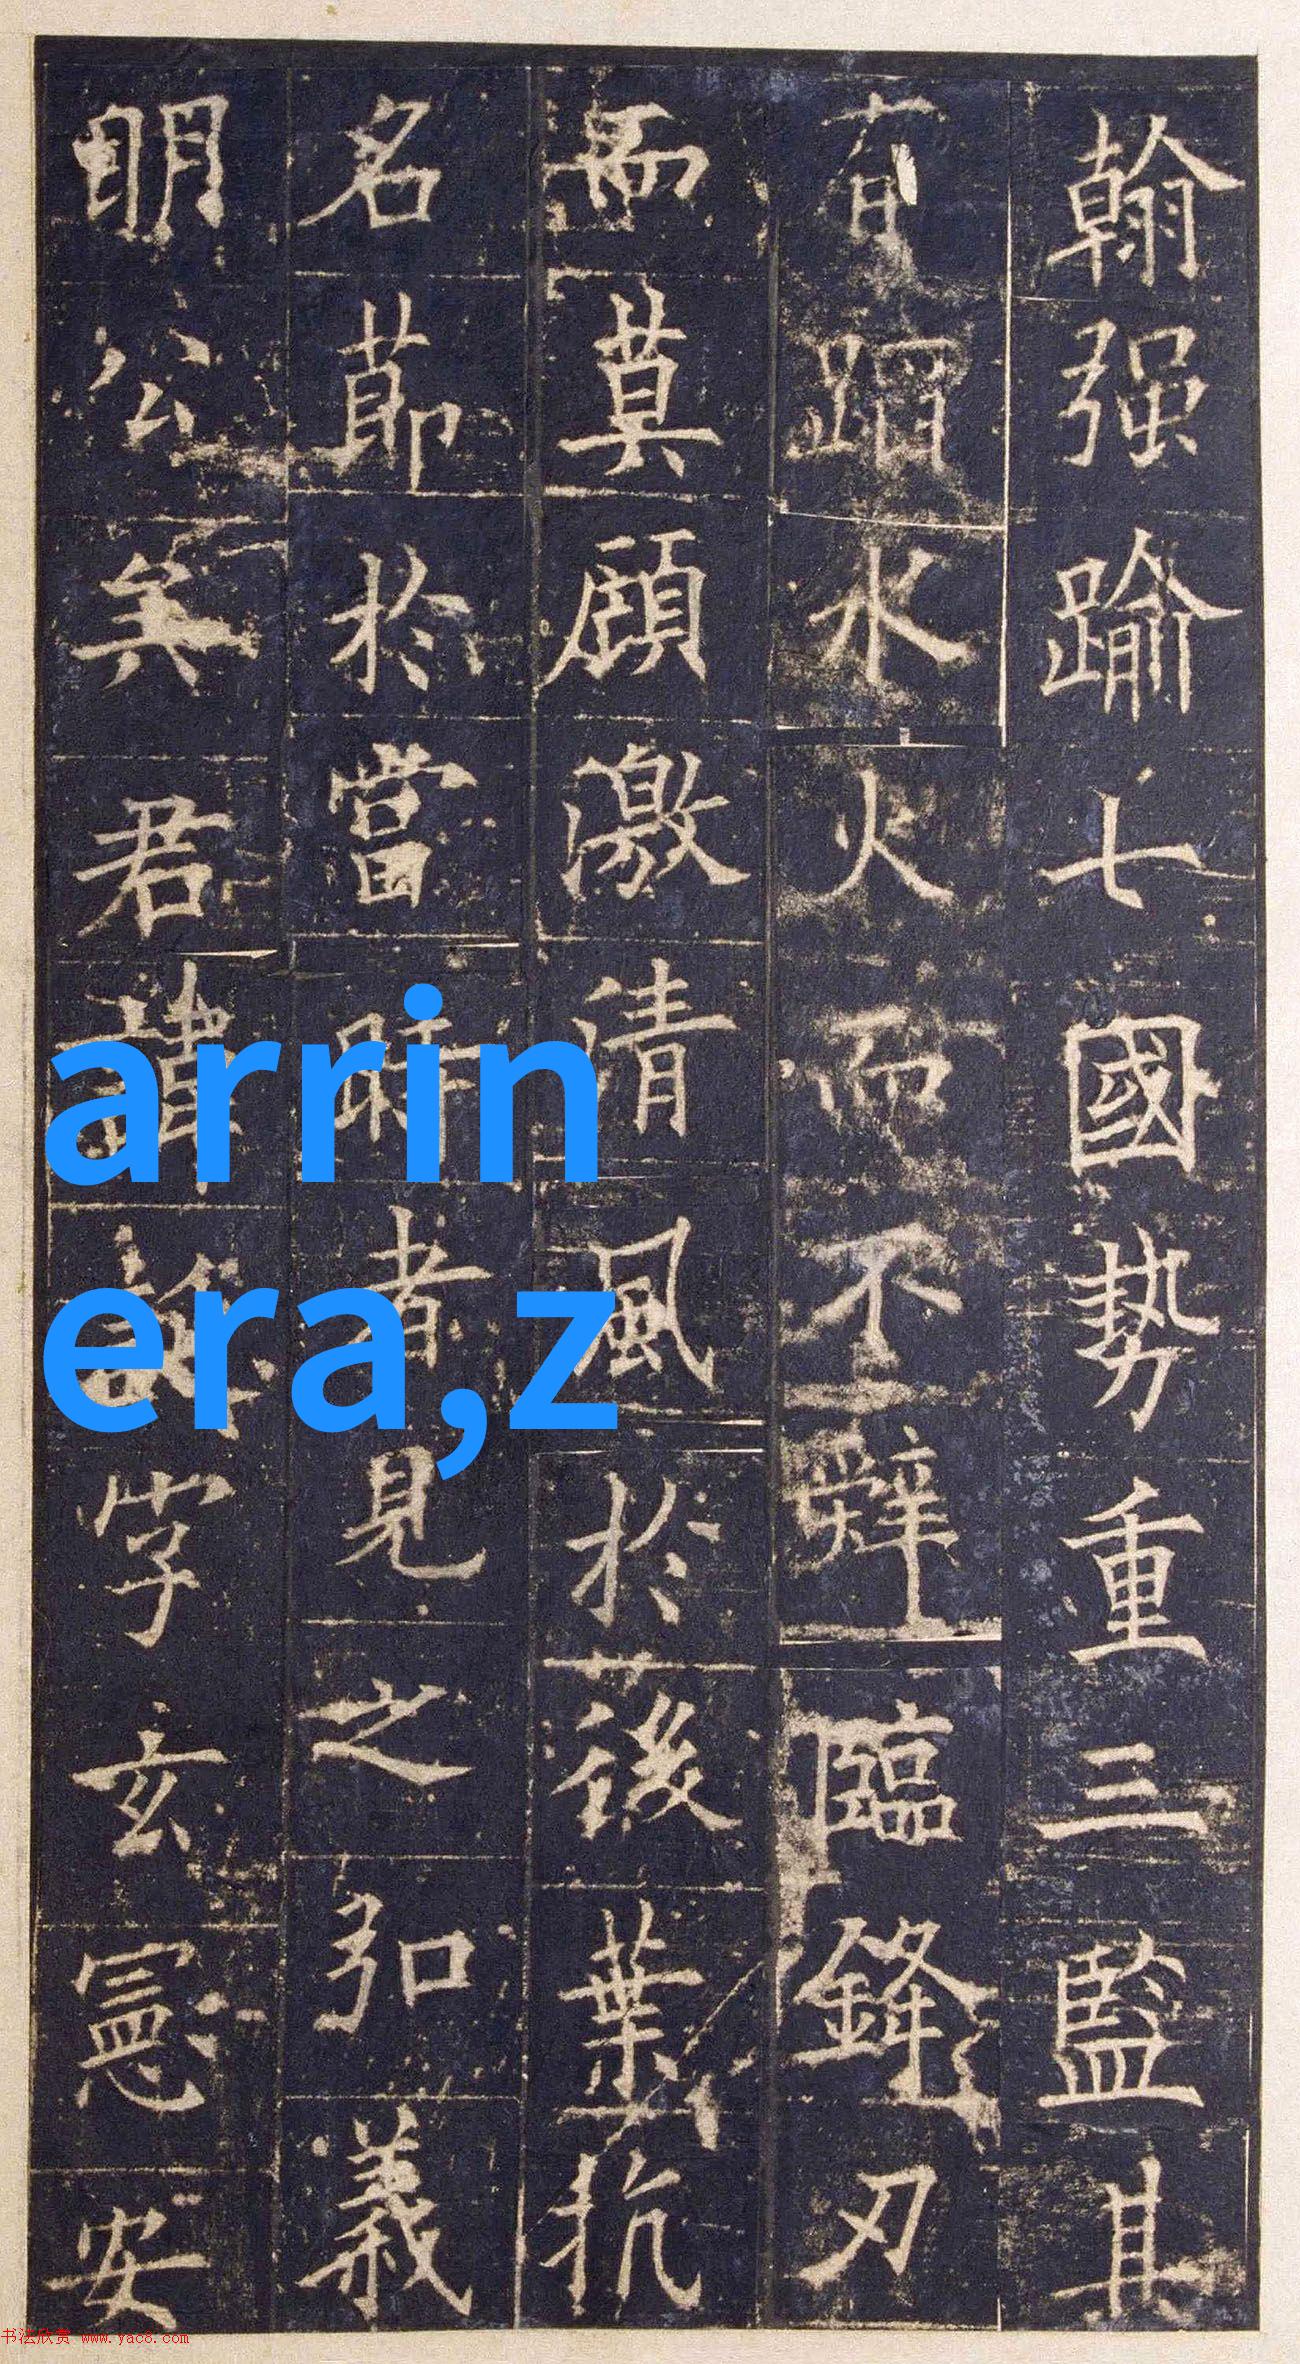 翰强踰七國勢重三監其
有蹈水火而不辭臨鋒刃
而莫顧激清風於後葉抗
名莭於當時者見之弘義
明公矣君諱誕字玄憲安
arrin
era,z
书法欣赏 www.yac8.com